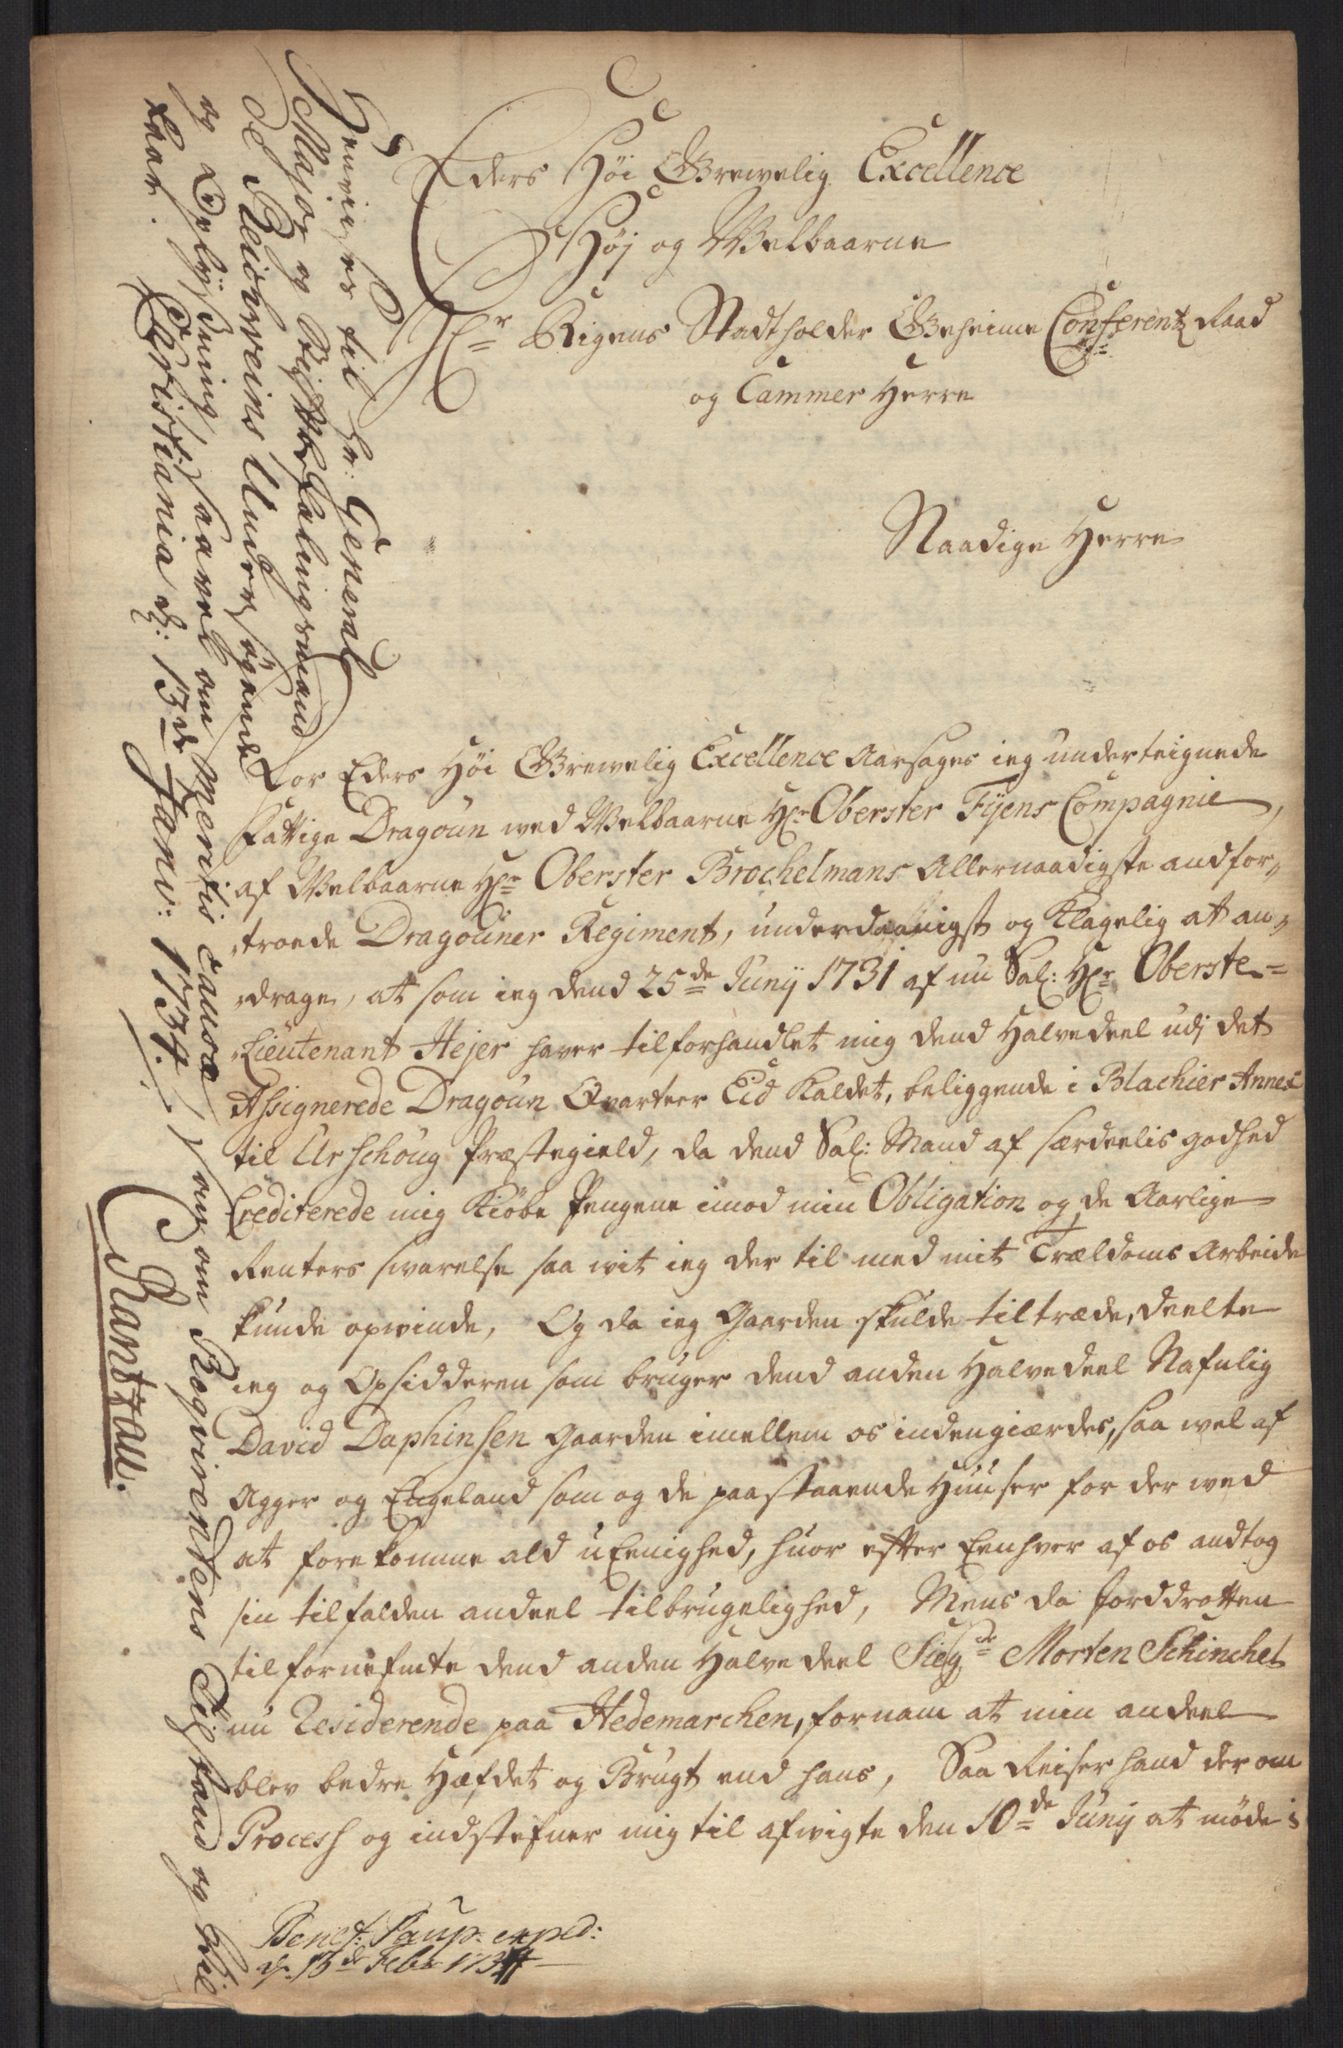 Eders Høi Grewelig Excellence
Høj og Welbaarne
Hr Rigens Stadtholder Geheime Conferentz Raad
og Cammer Herre
Naadige Herre
For Eders Høi Grewelig Excellence Aarsages ieg underteignede
Fattige Dragoun wed Welbaarne Hr Oberster Fÿens Compagnie,
af Welbaarne Hr Oberster Brochelmans Allernaadigste andfor-
troede Dragouner Regiment, underdaanigst og Klagelig at an-
drage, at som ieg dend 25de Junÿ 1731 af nu Sal: Hr Oberste-
Lieutenant Hejer haver tilforhandlet mig dend Halvedeel udj det
Assignerede Dragoun Qvarteer Eid Kaldet, beliggende i Blachier Annex
til Urschoug Præstegield, da dend Sal: Mand af særdeelis godhed
Crediterede mig Kiøbe Pengene imod min Obligation og de Aarlige
Renters swarelse saa wit ieg der til med mit Trældoms Arbeide
kunde opwinde, Og da ieg Gaarden skulde tiltræde, deelte
ieg og Opsidderen som bruger dend anden Halvedeel Nafnlig
David Daphinsen Gaarden imellem os indengiærdes, saa wel af
Agger og Engeland som og de paastaaende Huuser for der wed
at forekomme ald uEenighed, huor efter Eenhver af os andtog
sin tilfalden andeel til brugelighed, Mens da Jorddrotten
til fornefnte dend anden Halvedeel Sieg:r Morten Schinchel
nu Residerende paa Hedemarchen, fornam at min andeel
blev bedre Hæfdet og Brugt end hans, Saa Reiser hand der om
Process og indstefner mig til afwigte den 10de Junÿ at møde i
Benef: Paup: exped:
d. 13de Febr 1734
Henvises til hr: General
Major og Befalingsmand
de Seidweins Undersøgende
og Oplysning, saavel om Mentis causæ, som om Reqvirentens Tilstand og Vil-
kaar. Christiania d: 13de Janv: 1734.
Rantzau.